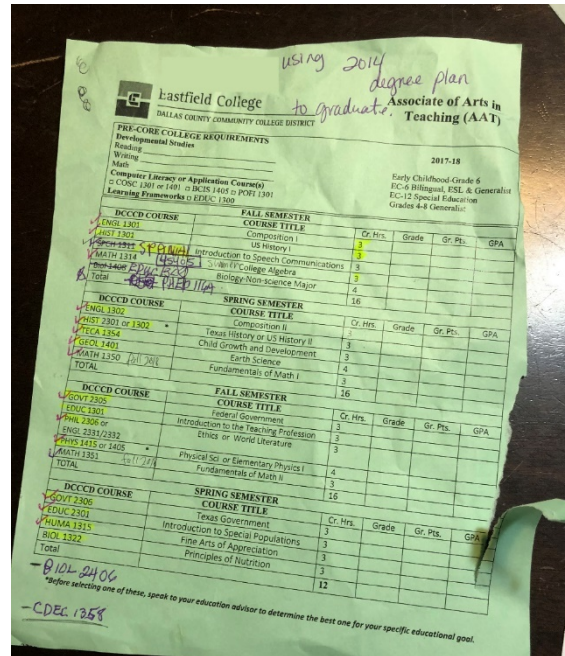 using 2014
degree plan
to graduate.
Eastfield College
DALLAS COUNTY COMMUNITY COLLEGE DISTRICT
Associate of Arts in
Teaching (AAT)
PRE-CORE COLLEGE REQUIREMENTS
Developmental Studies
Reading
Writing
Math
Computer Literacy or Application Course(s)
□ COSC 1301 or 1401 □ BCIS 1405 □ POFI 1301
Learning Frameworks □ EDUC 1300
2017-18
Early Childhood-Grade 6
EC-6 Bilingual, ESL & Generalist
EC-12 Special Education
Grades 4-8 Generalist
FALL SEMESTER
DCCCD COURSE COURSE TITLE Cr. Hrs. Grade Gr. Pts. GPA
ENGL 1301 Composition I 3
HIST 1301 US History I 3
SPCH 1311 Introduction to Speech Communications 3
MATH 1314 College Algebra 3
Biol 1408 Biology-Non-science Major 4
Total 16
SPRING SEMESTER
DCCCD COURSE COURSE TITLE Cr. Hrs. Grade Gr. Pts. GPA
ENGL 1302 Composition II
HIST 2301 or 1302 * Texas History or US History II 3
TECA 1354 Child Growth and Development 3
GEOL 1401 Earth Science 4
MATH 1350 Fundamentals of Math I 3
TOTAL 16
FALL SEMESTER
DCCCD COURSE COURSE TITLE Cr. Hrs. Grade Gr. Pts. GPA
GOVT 2305 Federal Government 3
EDUC 1301 Introduction to the Teaching Profession 3
PHIL 2306 or Ethics or World Literature 3
ENGL 2331/2332
PHYS 1415 or 1405 * Physical Sci or Elementary Physics I 4
MATH 1351 Fundamentals of Math II 3
TOTAL 16
SPRING SEMESTER
DCCCD COURSE COURSE TITLE Cr. Hrs. Grade Gr. Pts. GPA
GOVT 2306 Texas Government 3
EDUC 2301 Introduction to Special Populations 3
HUMA 1315 Fine Arts of Appreciation 3
BIOL 1322 Principles of Nutrition 3
Total 12
- BIOL 2406
*Before selecting one of these, speak to your education advisor to determine the best one for your specific educational goal.
- CDEC 1358